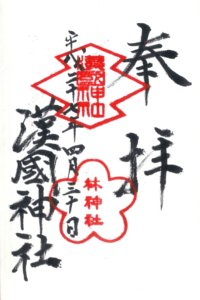 奉拝
漢國神社
平成二十八年四月三十日
林神社